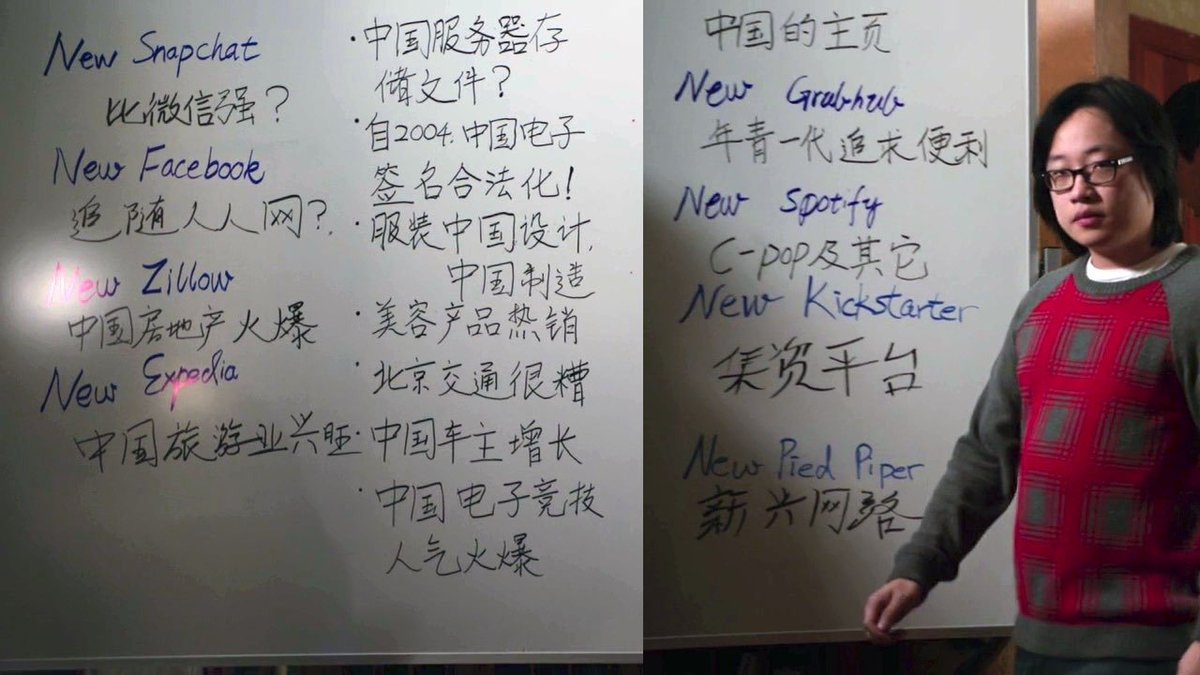 New Snapchat
比微信强？
New Facebook
追随人人网？
New Zillow
中国房地产火爆
New Expedia
中国旅游业兴旺
·中国服务器存
储文件？
·自2004.中国电子
签名合法化！
·服装中国设计，
中国制造
·美容产品热销
·北京交通很糟
·中国车主增长
·中国电子竞技
人气火爆
中国的主页
New Grubhub
年青一代追求便利
New Spotify
C-pop及其它
New Kickstarter
集资平台
New Pied Piper
新兴网络